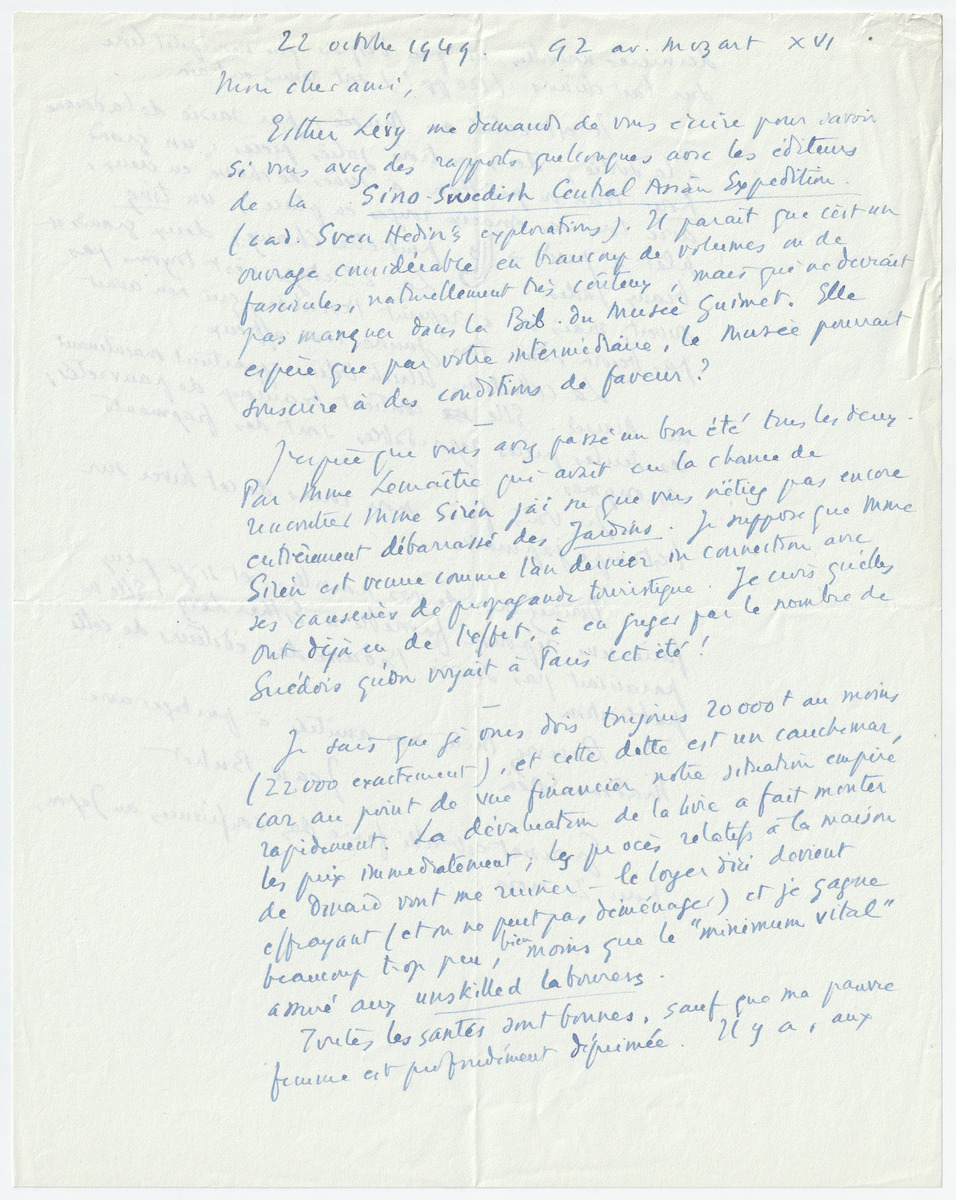 22 octobre 1949. 92 av. Mozart XVI
Mon cher ami,
Esther Lévy me demande de vous écrire pour savoir
si vous avez des rapports quelconques avec les éditeurs
de la Sino-Swedish Central Asian Expedition.
(cad. Sven Hedin's explorations). Il parait que c'est un
ouvrage considérable en beaucoup de volumes ou de
fascicules, naturellement très couteux, mais qui ne devrait
pas manquer dans la Bib. du Musée Guimet. Elle
espère que par votre intermédiaire, le Musée pourrait
souscrire à des conditions de faveur?
J'espère que vous avez passé un bon été tous les deux.
Par Mme Lemaître qui avait eu la chance de
rencontrer Mme Sirén j'ai su que vous n'étiez pas encore
entièrement débarrassé des Jardins. Je suppose que Mme
Sirén est venue comme l'an dernier in connection avec
ses causeries de propagande touristique. Je crois qu'elles
ont déjà eu de l'effet, à en juger par le nombre de
Suédois qu'on voyait à Paris cet été!
Je sais que je vous dois toujours 20000f au moins
(22000 exactement), et cette dette est un cauchemar,
car au point de vue financier notre situation empire
rapidement. La dévaluation de la livre a fait monter
les prix immédiatement; les procès relatifs à la maison
de Dinard vont me ruiner – le loyer d'ici devient
effrayant (et on ne peut pas déménager) et je gagne
beaucoup trop peu, bien moins que le "minimum vital"
assuré aux unskilled labourers.
Toutes les santés sont bonnes, sauf que ma pauvre
femme est profondément déprimée. Il y a, aux